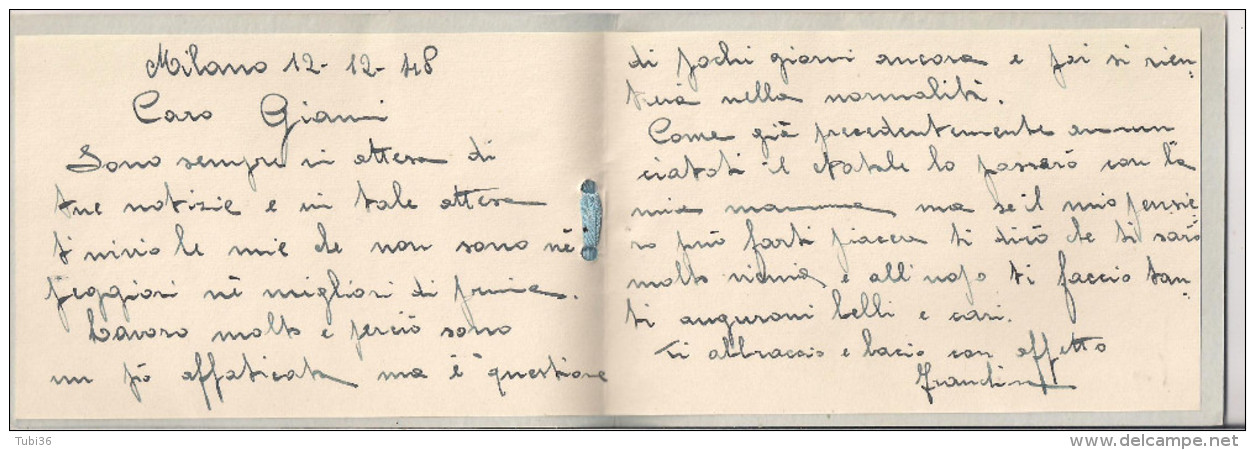 Milano 12-12-48
Caro Gianni
Sono sempre in attesa di
tue notizie e in tale attesa
ti invio le mie che non sono nè
peggiori nè migliori di prima.
Lavoro molto e perciò sono
un pò affaticata ma è questione
di pochi giorni ancora e poi si rien-
trerà nella normalità.
Come già precedentemente annun
ciatoti il Natale lo passerò con la
mia mamma ma se il mio pensie
ro può farti piacere ti dirò che ti sarò
molto vicina e all'uopo ti faccio tan-
ti auguroni belli e cari.
Ti abbraccio e bacio con affetto
Tubi36
www.delcampe.net